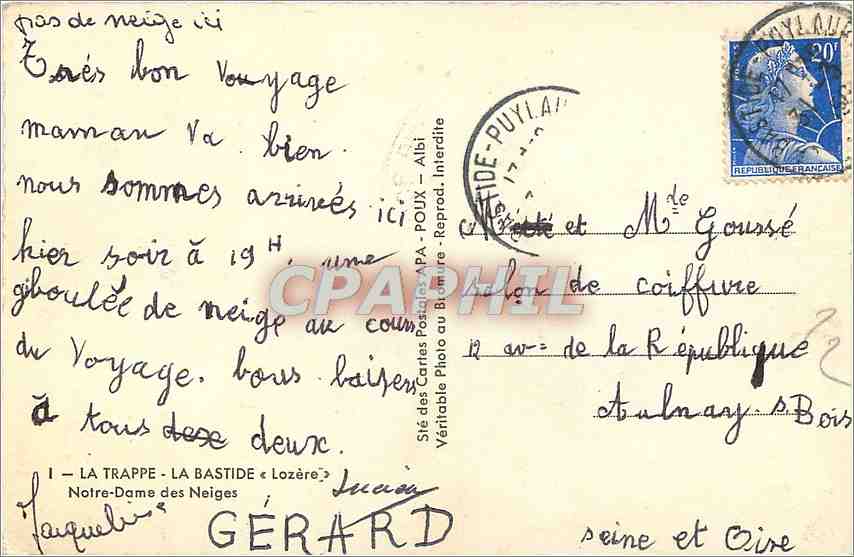 pas de neige ici
Trés bon voyage
maman va bien.
nous sommes arrivés ici
hier soir à 19H, une
giboulée de neige au cours
du voyage. bons baisers
à tous deux.
1 — LA TRAPPE - LA BASTIDE « Lozère »
Notre-Dame des Neiges
Jacqueline
Lucien
GÉRARD
Sté des Cartes Postales APA - POUX — Albi
Véritable Photo au Bromure - Reprod. Interdite
CPAPHIL
BASTIDE-PUYLAU
BASTIDE-PUYLAUR
20F
REPUBLIQUE FRANÇAISE
M et Mde Goussé
salon de coiffure
12 av= de la République
Aulnay s Bois
seine et Oise